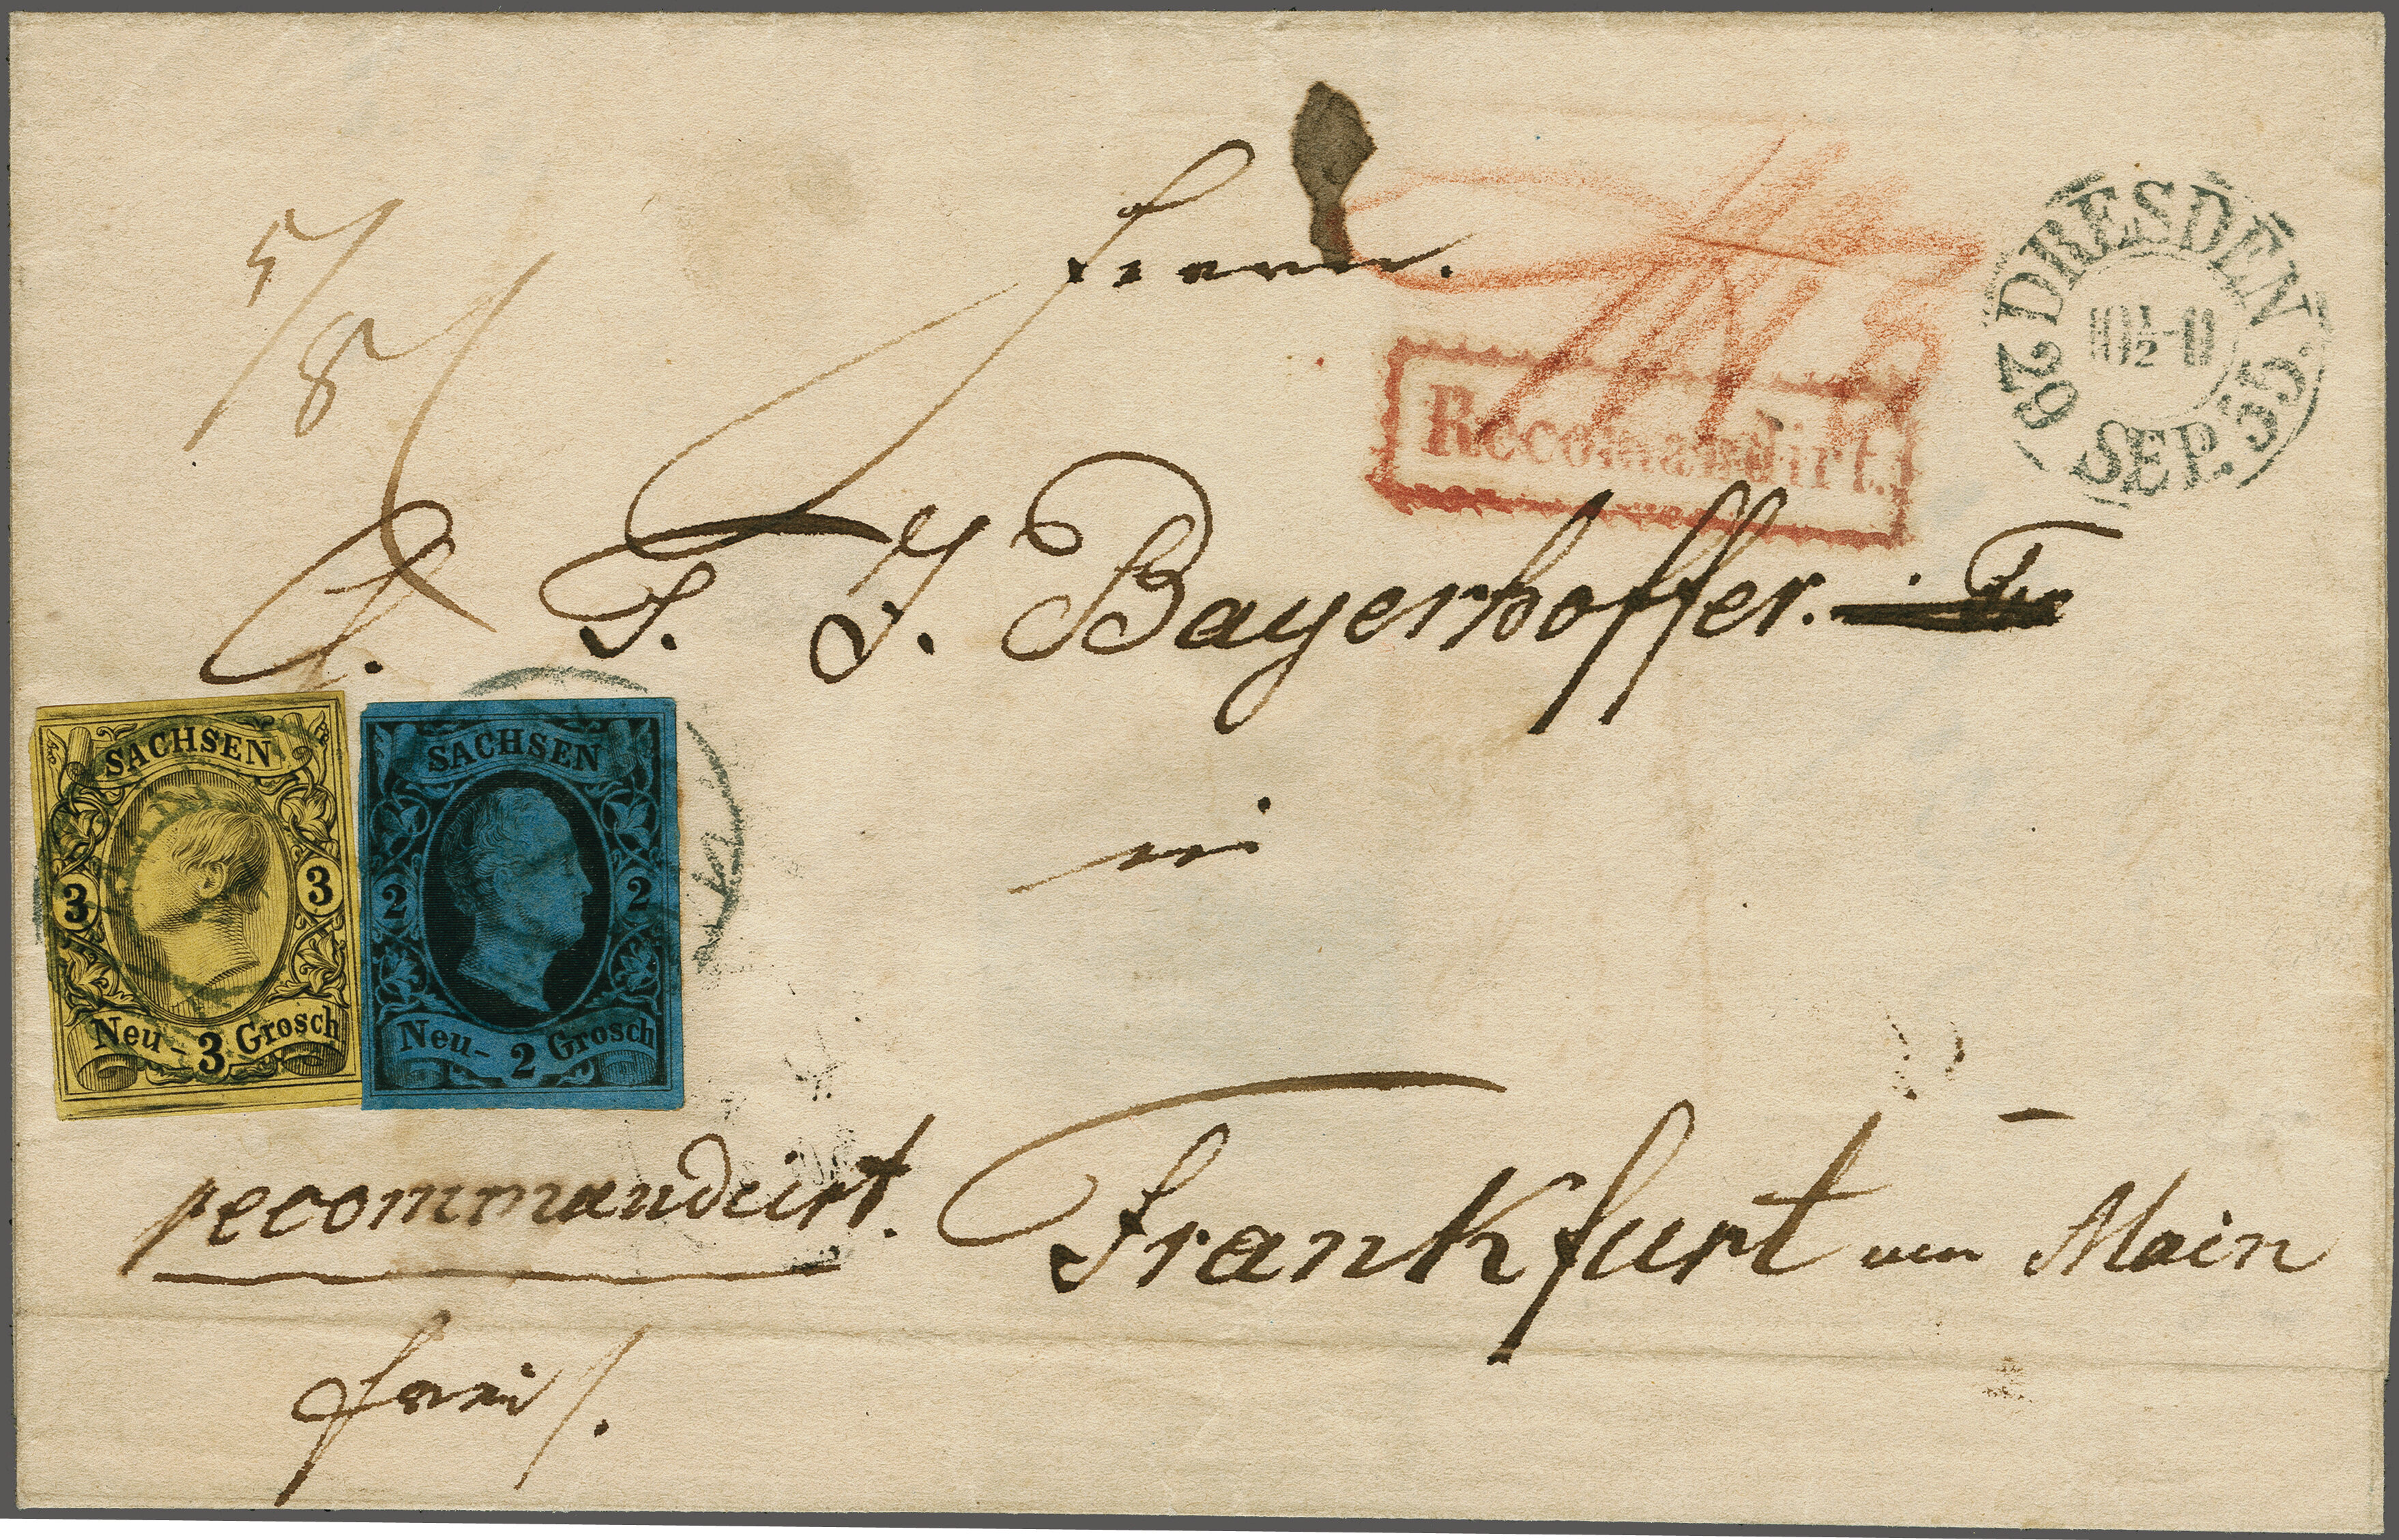 5/8
Herrn.
Recomandirt.
DRESDEN
10½-11
29 SEP. 55.
T. J. Bayerhoffer.
in
SACHSEN
3 3
Neu- 3 Grosch
SACHSEN
2 2
Neu- 2 Grosch
recommandirt.
Frankfurt am Main